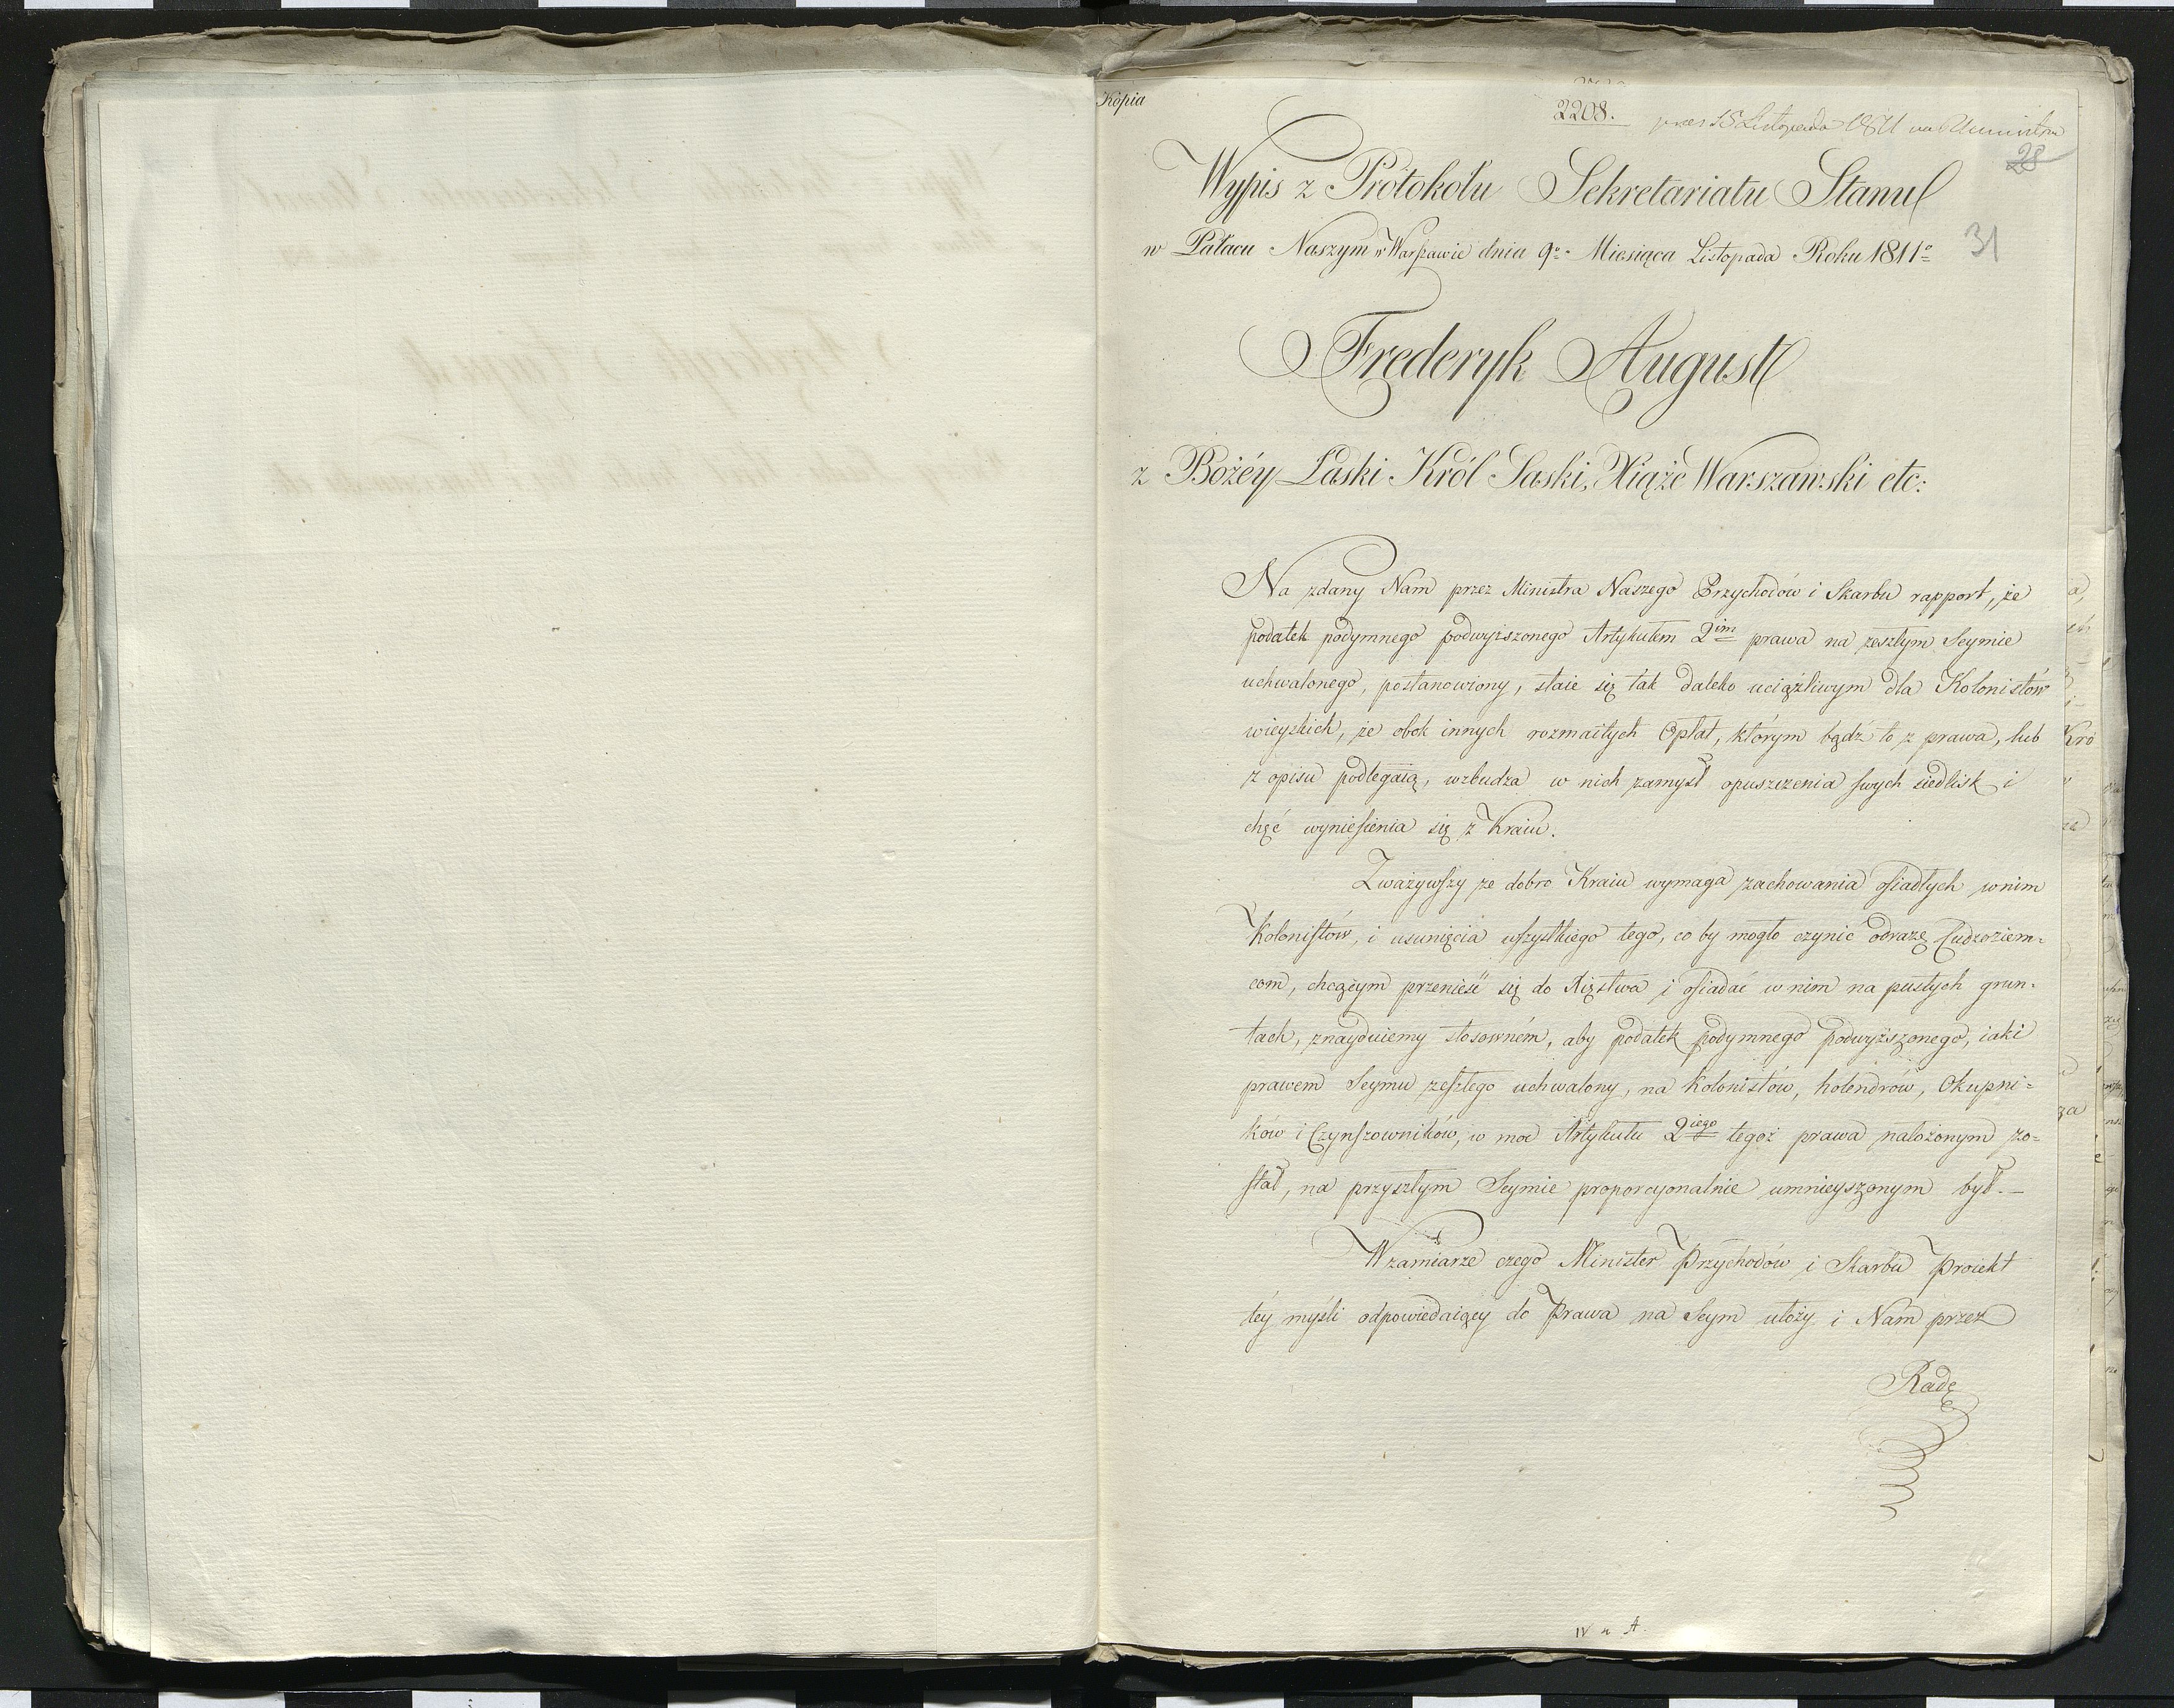 Kopia
2208.
28
31
Wypis z Protokołu Sekretariatu Stanu
w Pałacu Naszym w Warszawie dnia 9º Miesiąca Listopada Roku 1811º
Frederyk August
z Bożéy Łaski Król Saski, Xiążę Warszawski etc:
Na zdany Nam przez Ministra Naszego Przychodów i Skarbu rapport, że
podatek podymnego podwyższonego Artykułem 2im prawa na zeszłym Seymie
uchwalonego, postanowiony, staie się tak daleko uciążliwym dla Kolonistów
wieyskich, że obok innych rozmaitych Opłat, którym bądź to z prawa, lub
z opisu podlegaią, wzbudza w nich zamysł opuszczenia swych siedlisk i
chęć wyniesienia się z Kraiu.
Zważywszy że dobro Kraiu wymaga zachowania osiadłych w nim
Kolonistów, i usunięcia wszystkiego tego, co by mogło czynić odrazę Cudzoziem=
com, chcącym przenieść się do Xięstwa i osiadać w nim na pustych grun=
tach, znayduiemy stosowném, aby podatek podymnego podwyższonego, iaki
prawem Seymu zeszłego uchwalony, na kolonistów, holendrów, Okupni=
ków i Czynszowników, w moc Artykułu 2iego tegoż prawa nałożonym zo=
stał, na przyszłym Seymie proporcyonalnie umnieyszonym był.—
W zamiarze czego Minister Przychodów i Skarbu Proiekt
téy myśli odpowiedaiący do Prawa na Seym ułoży i Nam przez
Radę